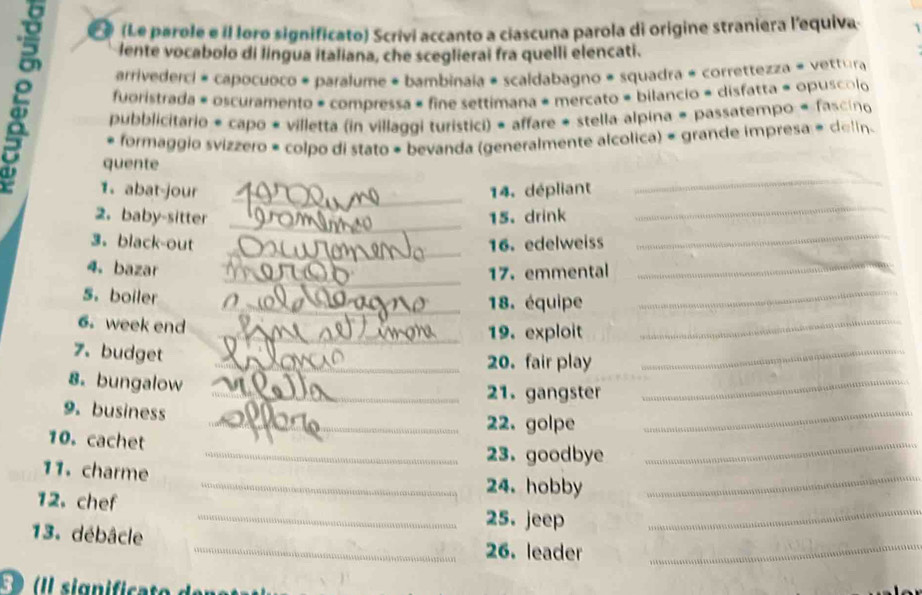 Recupero guidat
2 (Le parole e il loro significato) Scrivi accanto a ciascuna parola di origine straniera l'equiva-
lente vocabolo di lingua italiana, che sceglierai fra quelli elencati.
arrivederci • capocuoco • paralume • bambinaia • scaldabagno • squadra • correttezza • vettura
fuoristrada • oscuramento • compressa • fine settimana • mercato • bilancio • disfatta • opuscolo
pubblicitario • capo • villetta (in villaggi turistici) • affare • stella alpina • passatempo • fascino
• formaggio svizzero • colpo di stato • bevanda (generalmente alcolica) • grande impresa • delin-
quente
1. abat-jour
2. baby-sitter
3. black-out
4. bazar
5. boiler
6. week end fine settimana
7. budget
8. bungalow
9. business
10. cachet
11. charme
12. chef
13. débâcle
14. dépliant
15. drink
16. edelweiss
17. emmental
18. équipe
19. exploit
20. fair play
21. gangster
22. golpe
23. goodbye
24. hobby
25. jeep
26. leader
3 (Il significato